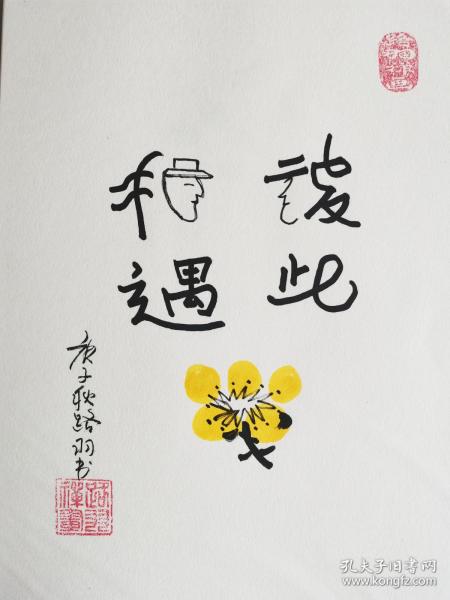 彼此
相遇
庚子秋路羽书
孔夫子旧书网
www.kongfz.com